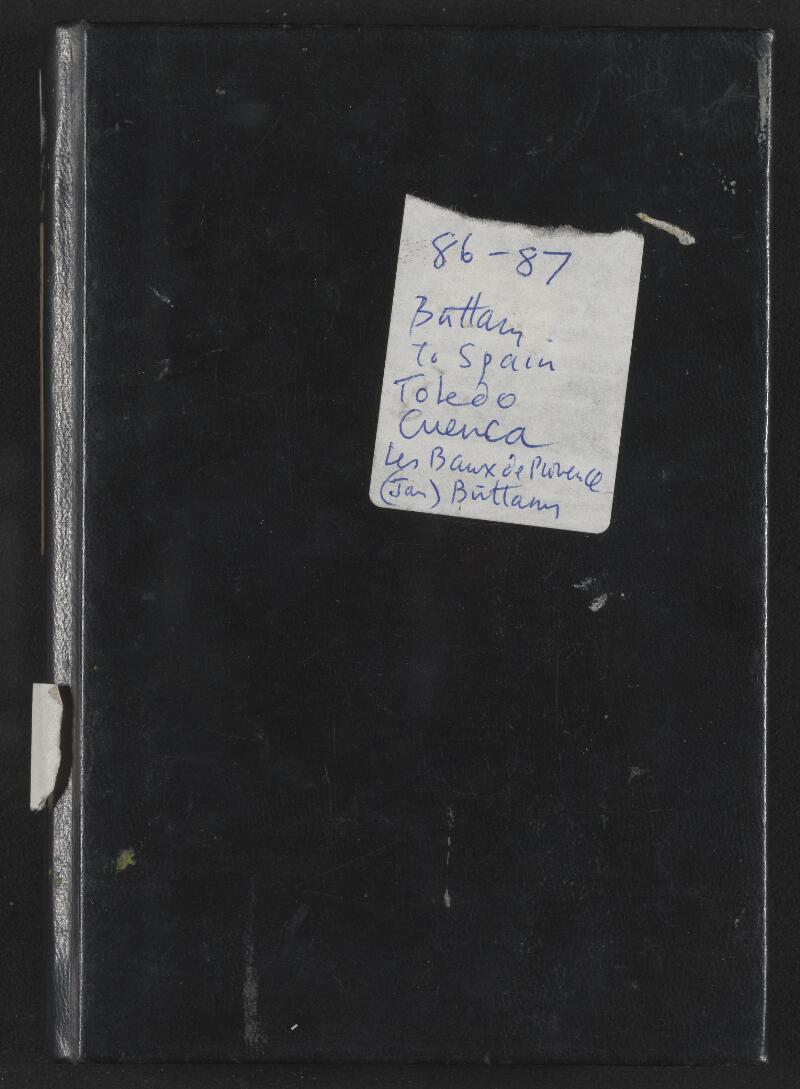 86-87
Brittany
to Spain
Toledo
Cuenca
Les Baux de Provence
(Jan) Brittany